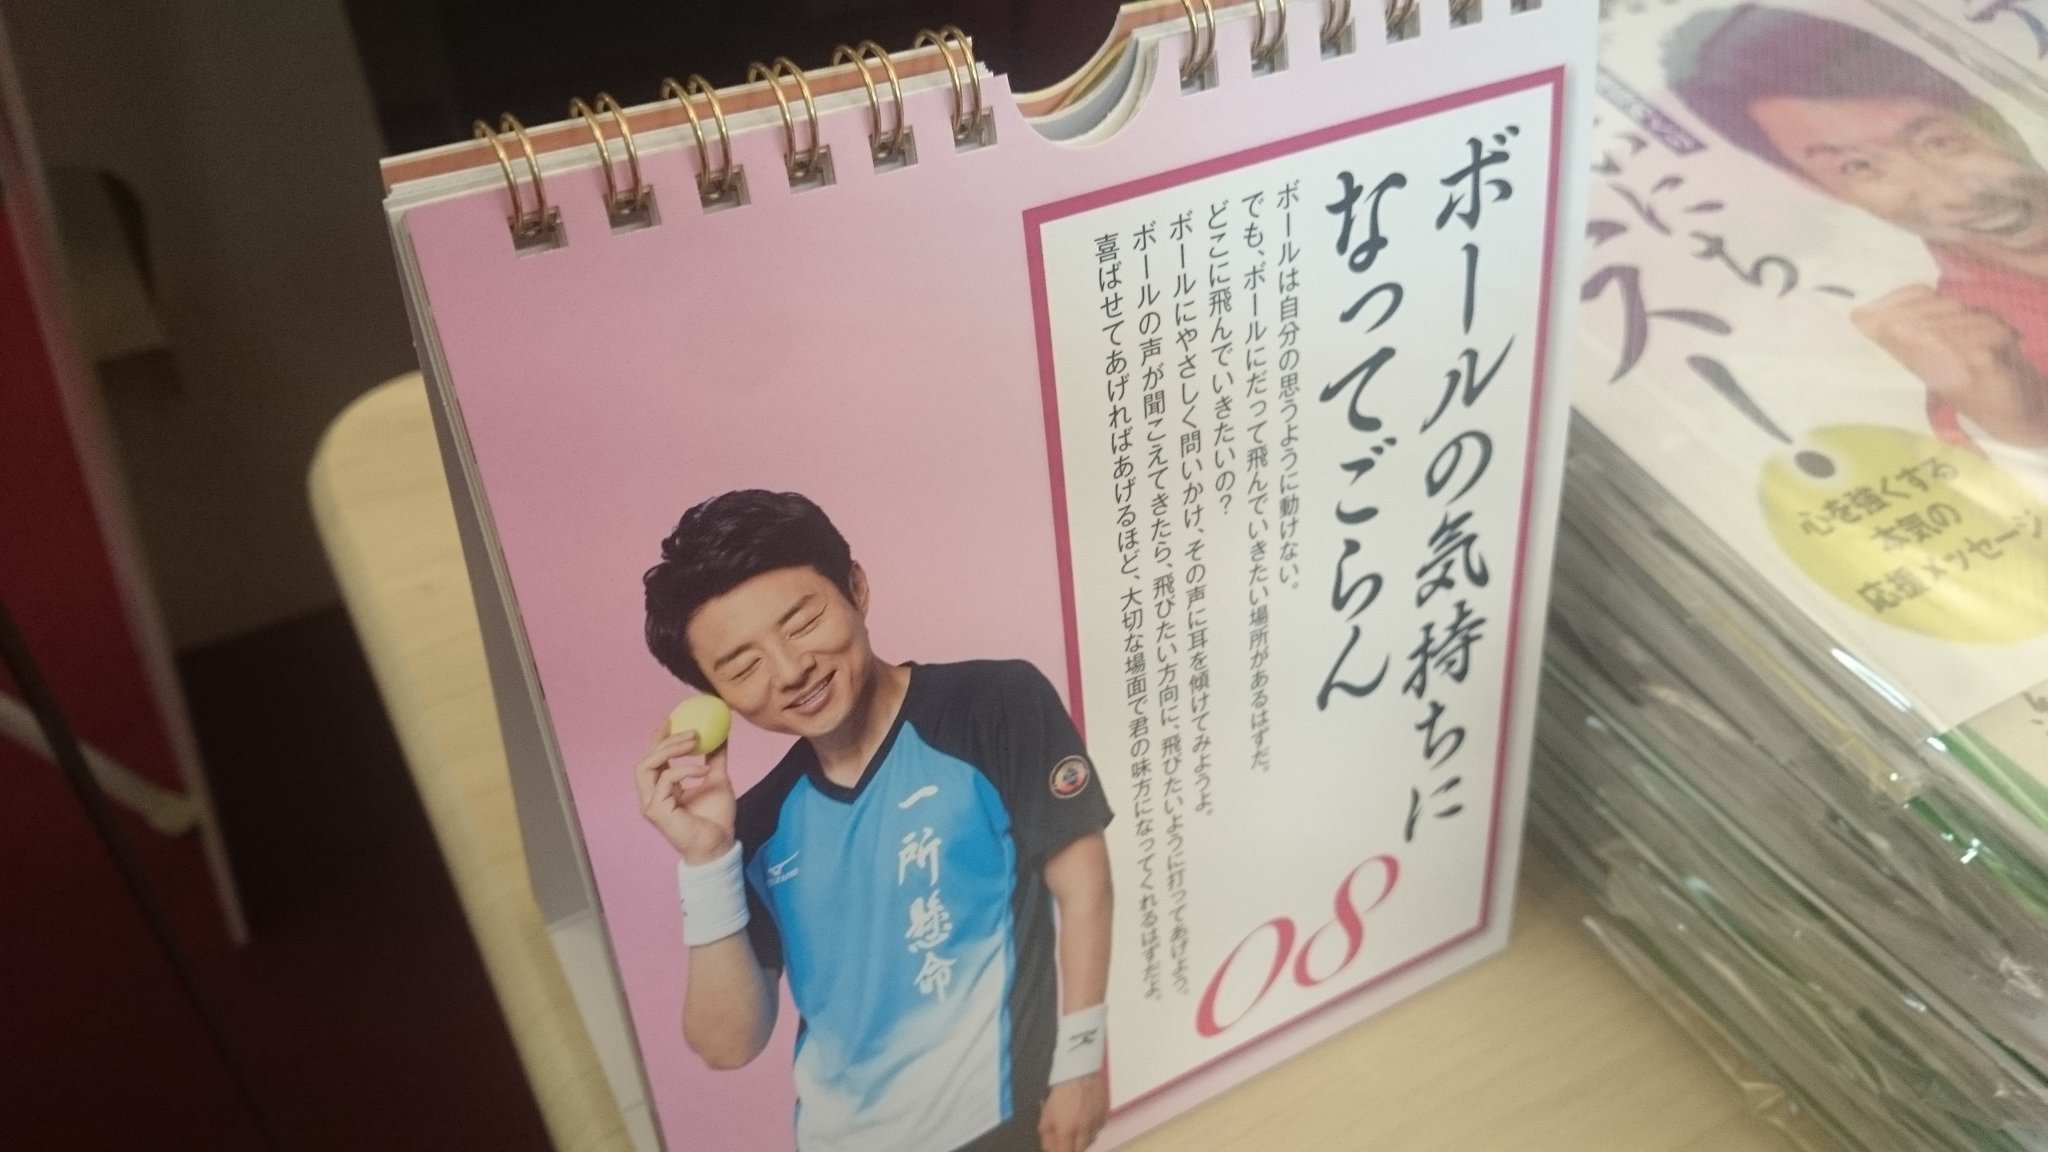 ボールの気持ちに
なってごらん
ボールは自分の思うように動けない。
でも、ボールにだって飛んでいきたい場所があるはずだ。
どこに飛んでいきたいの？
ボールにやさしく問いかけ、その声に耳を傾けてみようよ。
ボールの声が聞こえてきたら、飛びたい方向に、飛びたいように打ってあげよう。
喜ばせてあげればあげるほど、大切な場面で君の味方になってくれるはずだよ。
08
一所懸命
MIZUNO
心を強くする
本気の
応援メッセージ